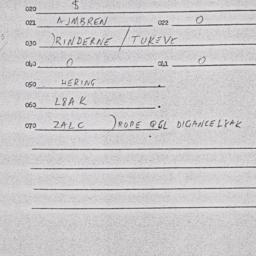 020 $
021 NJMBREN 022 0
030 )RINDERNE / TUKEVE
040 0 041 0
050 HERING
060 L8AK
070 ZALC )ROPE @GL DIGANCEL8AK